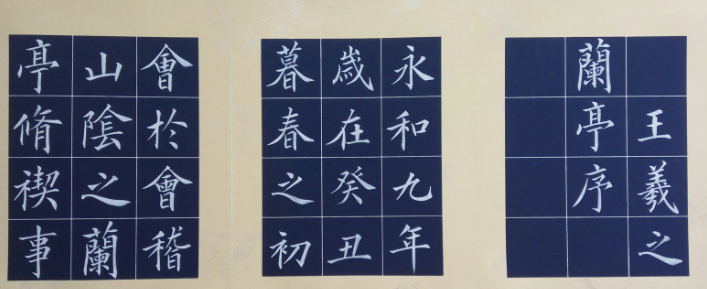 王羲之
蘭亭序
永和九年
歲在癸丑
暮春之初
會於會稽
山陰之蘭
亭脩禊事